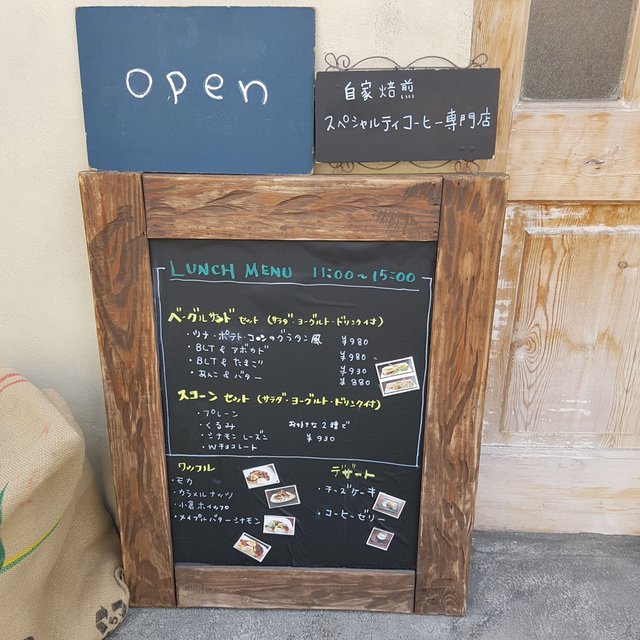 open
自家焙煎
スペシャルティコーヒー専門店
LUNCH MENU 11:00～15:00
ベーグルサンド セット (サラダ・ヨーグルト・ドリンク付)
・ツナ・ポテト・コーンのグラタン風 ¥980
・BLT & アボカド ¥980
・BLT & たまご ¥930
・あんこ & バター ¥880
スコーン セット (サラダ・ヨーグルト・ドリンク付)
・プレーン
・くるみ お好きな2種で
・シナモン レーズン ¥930
・Wチョコレート
ワッフル
・モカ
・カラメルナッツ
・小倉ホイップ
・メイプルバターシナモン
デザート
・チーズケーキ
・コーヒーゼリー